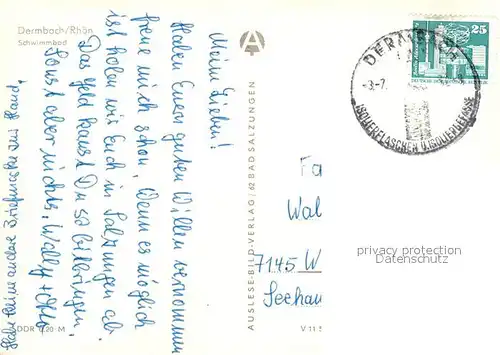 Dermbach/Rhön
Schwimmbad
Meine Lieben!
Haben Euren guten Willen vernommen
freue mich schon. Wenn es möglich
ist holen wir Euch in Salzungen ab.
Das Geld kannst Du so
Sonst aber nichts. Wally + Otto
Habe keine andere Briefmarke zur Hand.
DDR 0,20 M
AUSLESE-BILD-VERLAG, 62 BAD SALZUNGEN
V 11
25
DERMBACH
-3.-7.
ISOLIERFLASCHEN U. ISOLIERGEFÄSSE
Fa
Wal
7145 W
Seehau
privacy protection
Datenschutz